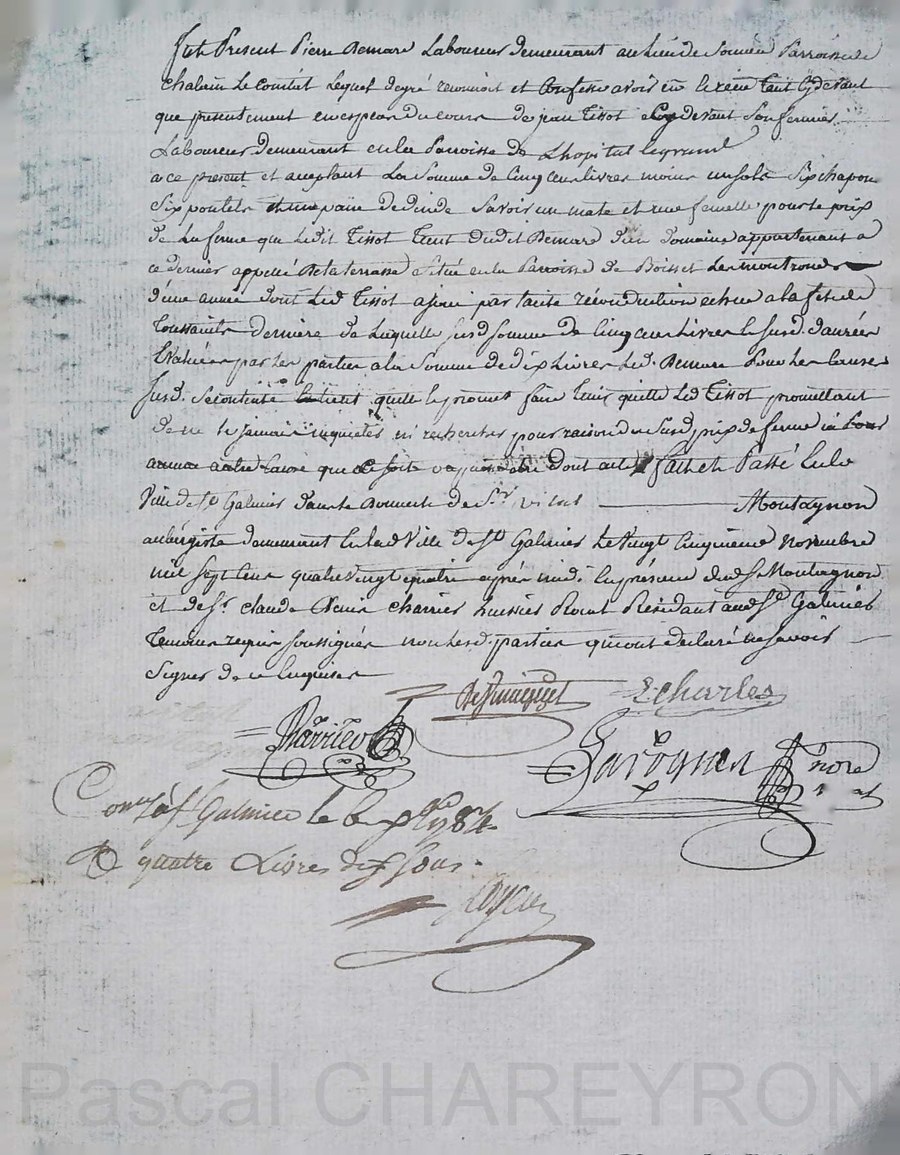 fut Present Pierre Demare Laboureur demeurant au lieu de Parroisse de
chalain Le comtal Lequel de gré reconnoit et Confesse avoir eu et receu tant cydevant
que presentement en especes du cours de jean Tissot cydevant son fermier
Laboureur demeurant en la Parroisse de Lhopital legrand
a ce present et aceptant La Somme de Cinq cent livres moins un sols Six chapons
Six poulets et une paire de dinde Savoir un male et une femelle pour le prix
de La ferme que Ledit Tissot tient dudit Demare d'un domaine appartenant a
ce dernier appellé de la terrasse située en la Parroisse de Boisset Les montrond
d'une année dont Led Tissot a joui par tacite réconduction echue a la fete de
Toussaints derniere de Laquelle susd Somme de Cinq cent Livres les susd. danrées
Evaluées par les parties a la Somme de dix Livres Led. Demare Pour les Causes
Susd. Se contente quitte et promet faire tenir quitte Led Tissot promettant
de ne le jamais inquieter ni rechercher pour raison du Susd prix de ferme
année que ce soit dont acte fait et Passé en la
Ville de St Galmier dans le domicile de Sr vital Montagnon
aubergiste demeurant en lad Ville de St Galmier Le Vingt Cinquieme novembre
mil Sept Cent quatre vingt quatre après midi En présence dud Sr Montagnon
et de Sr. claude Denis Charrier huissier Royal Résidant aud St Galmier
Temoins requis soussignés non lesd. parties qui ont declaré ne savoir
Signer de ce Enquises
Charles
Charrier
nore
Conlé a St Galmier le 1784
R quatre Livres dix Sous.
Pascal CHAREYRON